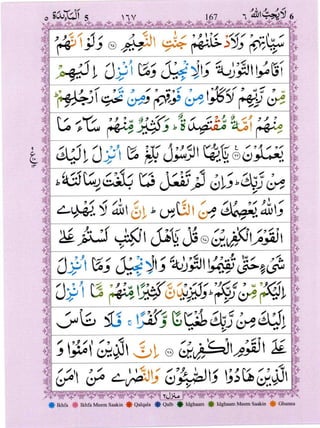 المآئدة ٥ ١٦٧ 167 لا يحب الله ٦
سَيِّاٰتِهِمْ وَلَاَدْخَلْنٰهُمْ جَنّٰتِ النَّعِيْمِ ۝٦٥ وَلَوْ اَنَّهُمْ
اَقَامُوا التَّوْرٰىةَ وَالْاِنْجِيْلَ وَمَآ اُنْزِلَ اِلَيْهِمْ
مِّنْ رَّبِّهِمْ لَاَكَلُوْا مِنْ فَوْقِهِمْ وَمِنْ تَحْتِ اَرْجُلِهِمْ ؕ
مِنْهُمْ اُمَّةٌ مُّقْتَصِدَةٌ ؕ وَكَثِيْرٌ مِّنْهُمْ سَآءَ مَا
يَعْمَلُوْنَ ۝٦٦ يٰٓاَيُّهَا الرَّسُوْلُ بَلِّغْ مَآ اُنْزِلَ اِلَيْكَ
مِنْ رَّبِّكَ ؕ وَاِنْ لَّمْ تَفْعَلْ فَمَا بَلَّغْتَ رِسَالَتَهٗ ؕ
وَاللّٰهُ يَعْصِمُكَ مِنَ النَّاسِ ؕ اِنَّ اللّٰهَ لَا يَهْدِى
الْقَوْمَ الْكٰفِرِيْنَ ۝٦٧ قُلْ يٰٓاَهْلَ الْكِتٰبِ لَسْتُمْ عَلٰى
شَىْءٍ حَتّٰى تُقِيْمُوا التَّوْرٰىةَ وَالْاِنْجِيْلَ وَمَآ اُنْزِلَ
اِلَيْكُمْ مِّنْ رَّبِّكُمْ ؕ وَلَيَزِيْدَنَّ كَثِيْرًا مِّنْهُمْ مَّآ اُنْزِلَ
اِلَيْكَ مِنْ رَّبِّكَ طُغْيَانًا وَّكُفْرًا ۚ فَلَا تَاْسَ
عَلَى الْقَوْمِ الْكٰفِرِيْنَ ۝٦٨ اِنَّ الَّذِيْنَ اٰمَنُوْا وَ
الَّذِيْنَ هَادُوْا وَالصّٰبِئُوْنَ وَالنَّصٰرٰى مَنْ اٰمَنَ
منزل ٢
Ikhfa Ikhfa Meem Saakin Qalqala Qalb Idghaam Idghaam Meem Saakin Ghunna